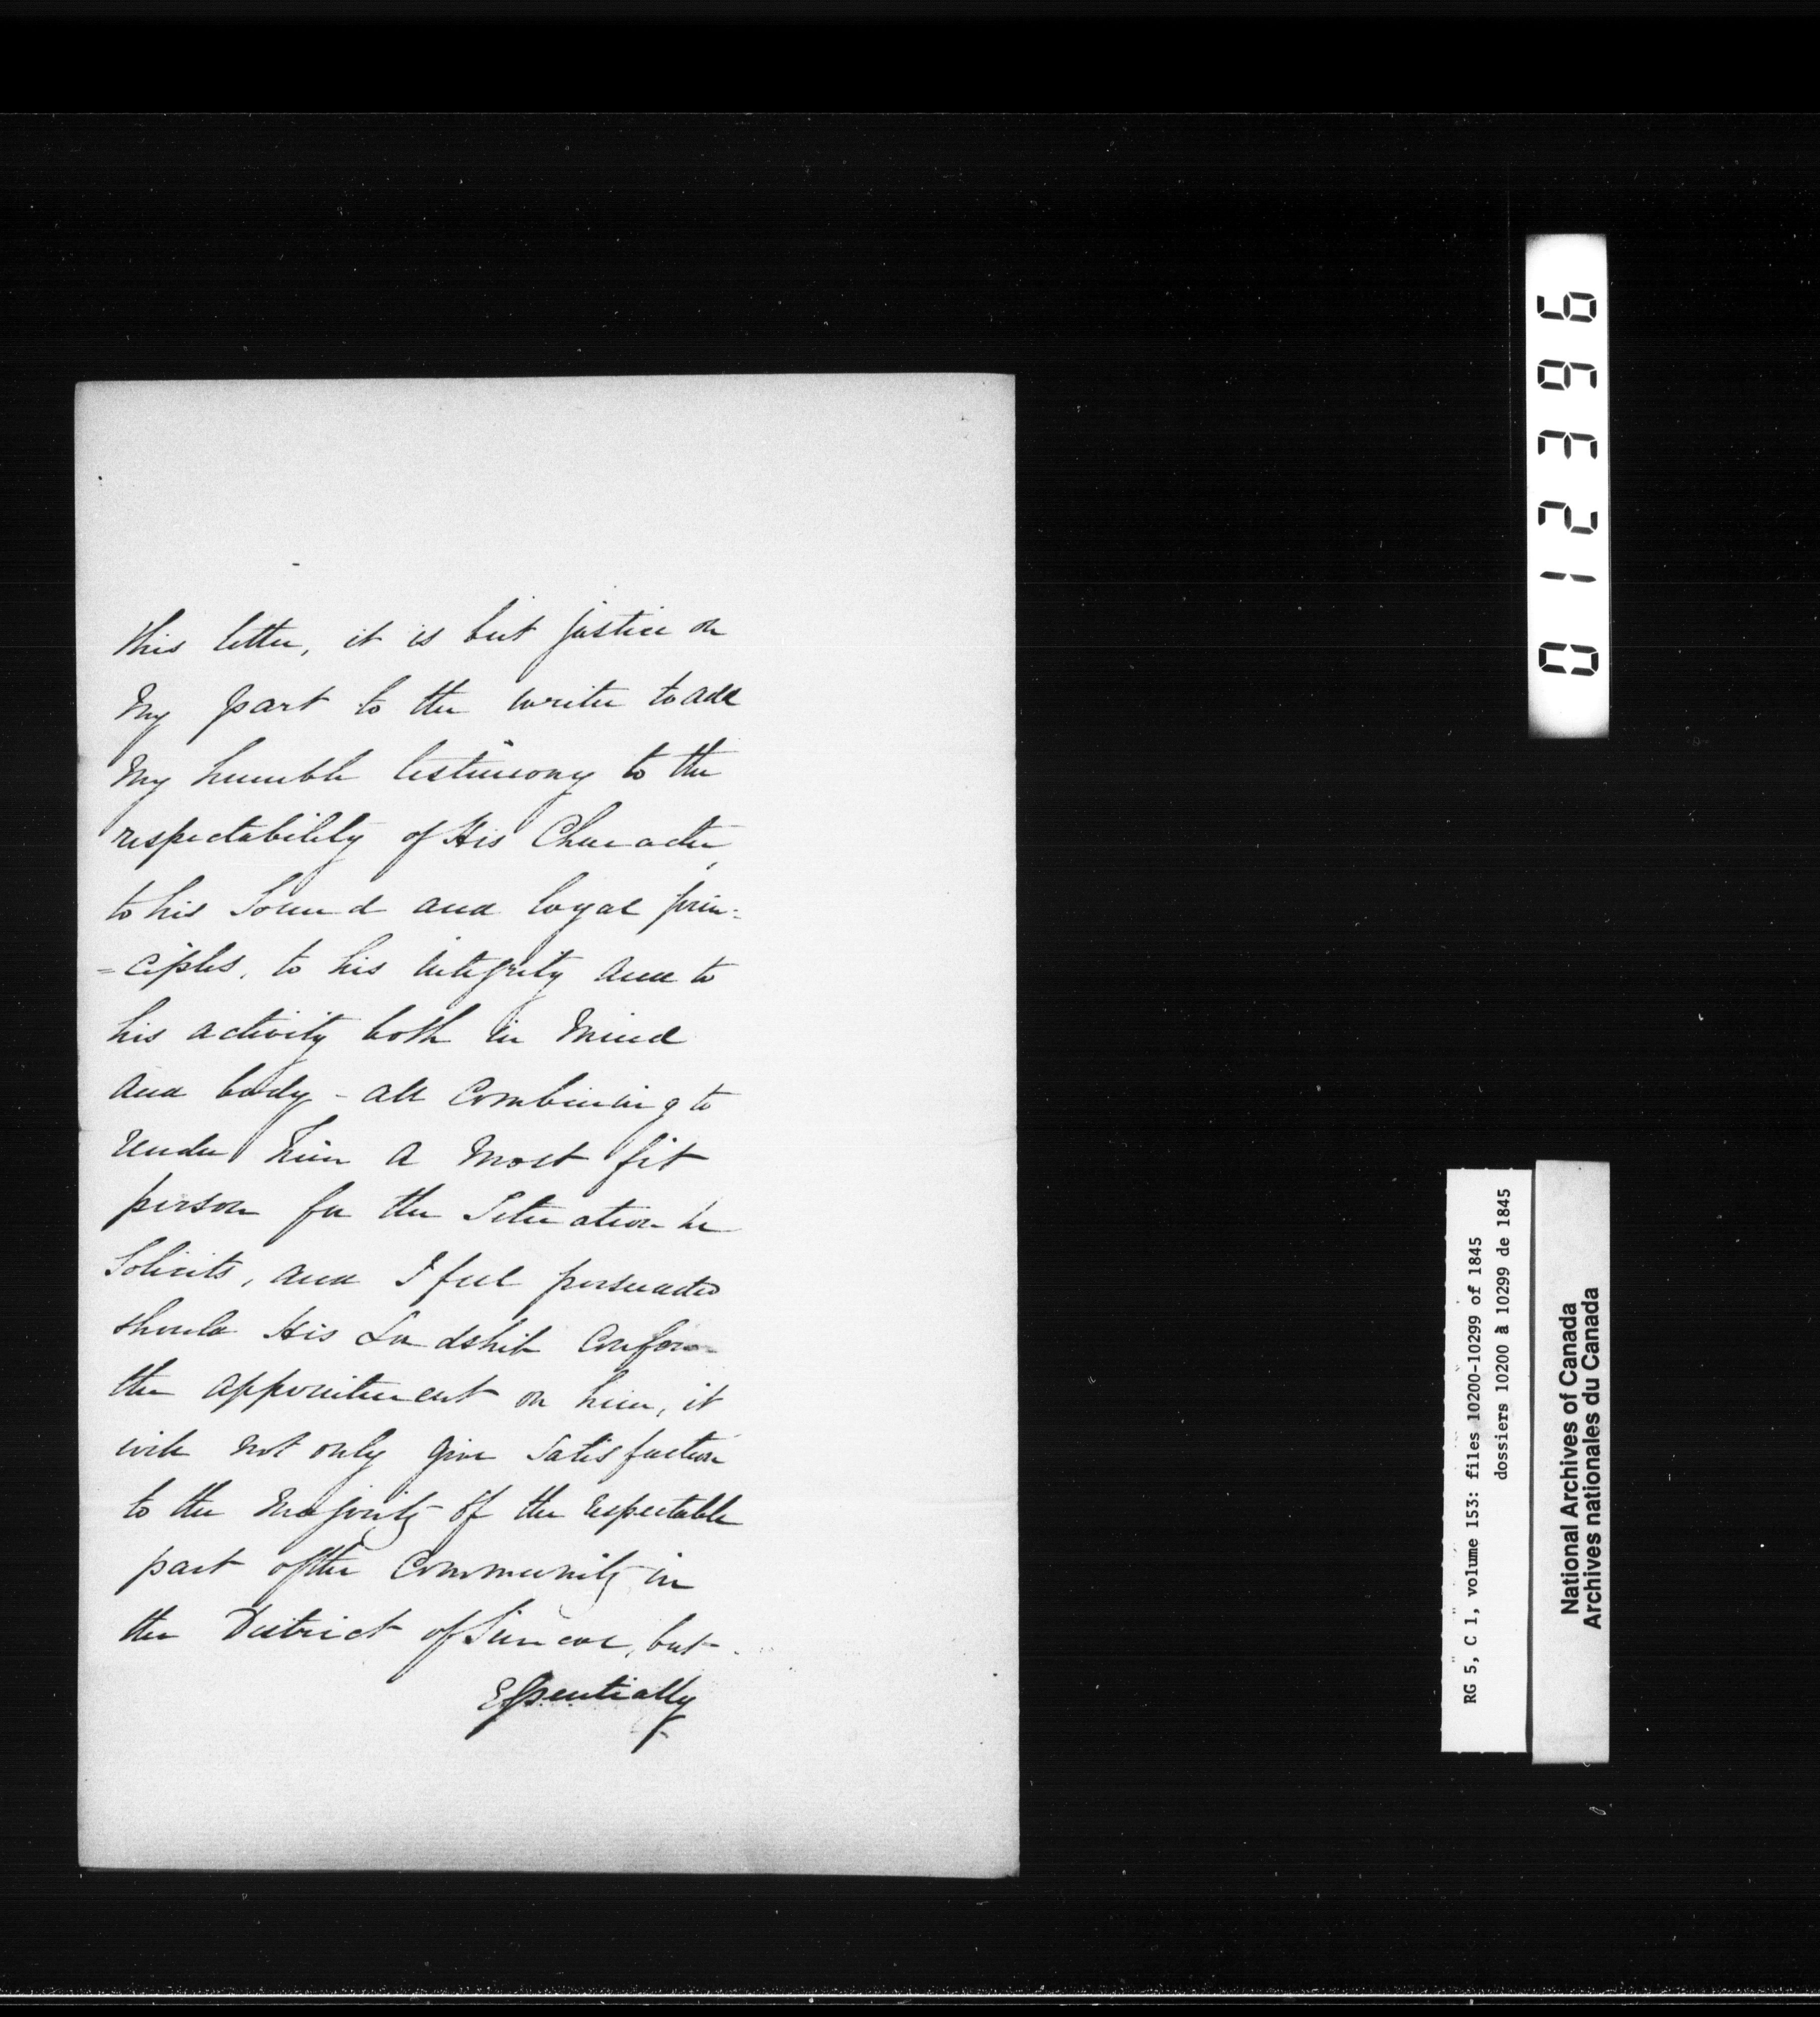 this letter, it is but justice on
my part to the writer to add
my humble testimony to the
respectability of His Character,
to his Sound and loyal prin=
=ciples, to his integrity and to
his activity both in Mind
and body - all Combining to
render him a Most fit
person for the Situation he
Solicits, and I feel persuaded
should His Lordship Confer
the appointment on him, it
will not only give Satisfaction
to the Majority of the respectable
part of the Community in
the District of Simcoe, but
Essentially
012396
RG 5, C 1, volume 153: files 10200-10299 of 1845
dossiers 10200 à 10299 de 1845
National Archives of Canada
Archives nationales du Canada